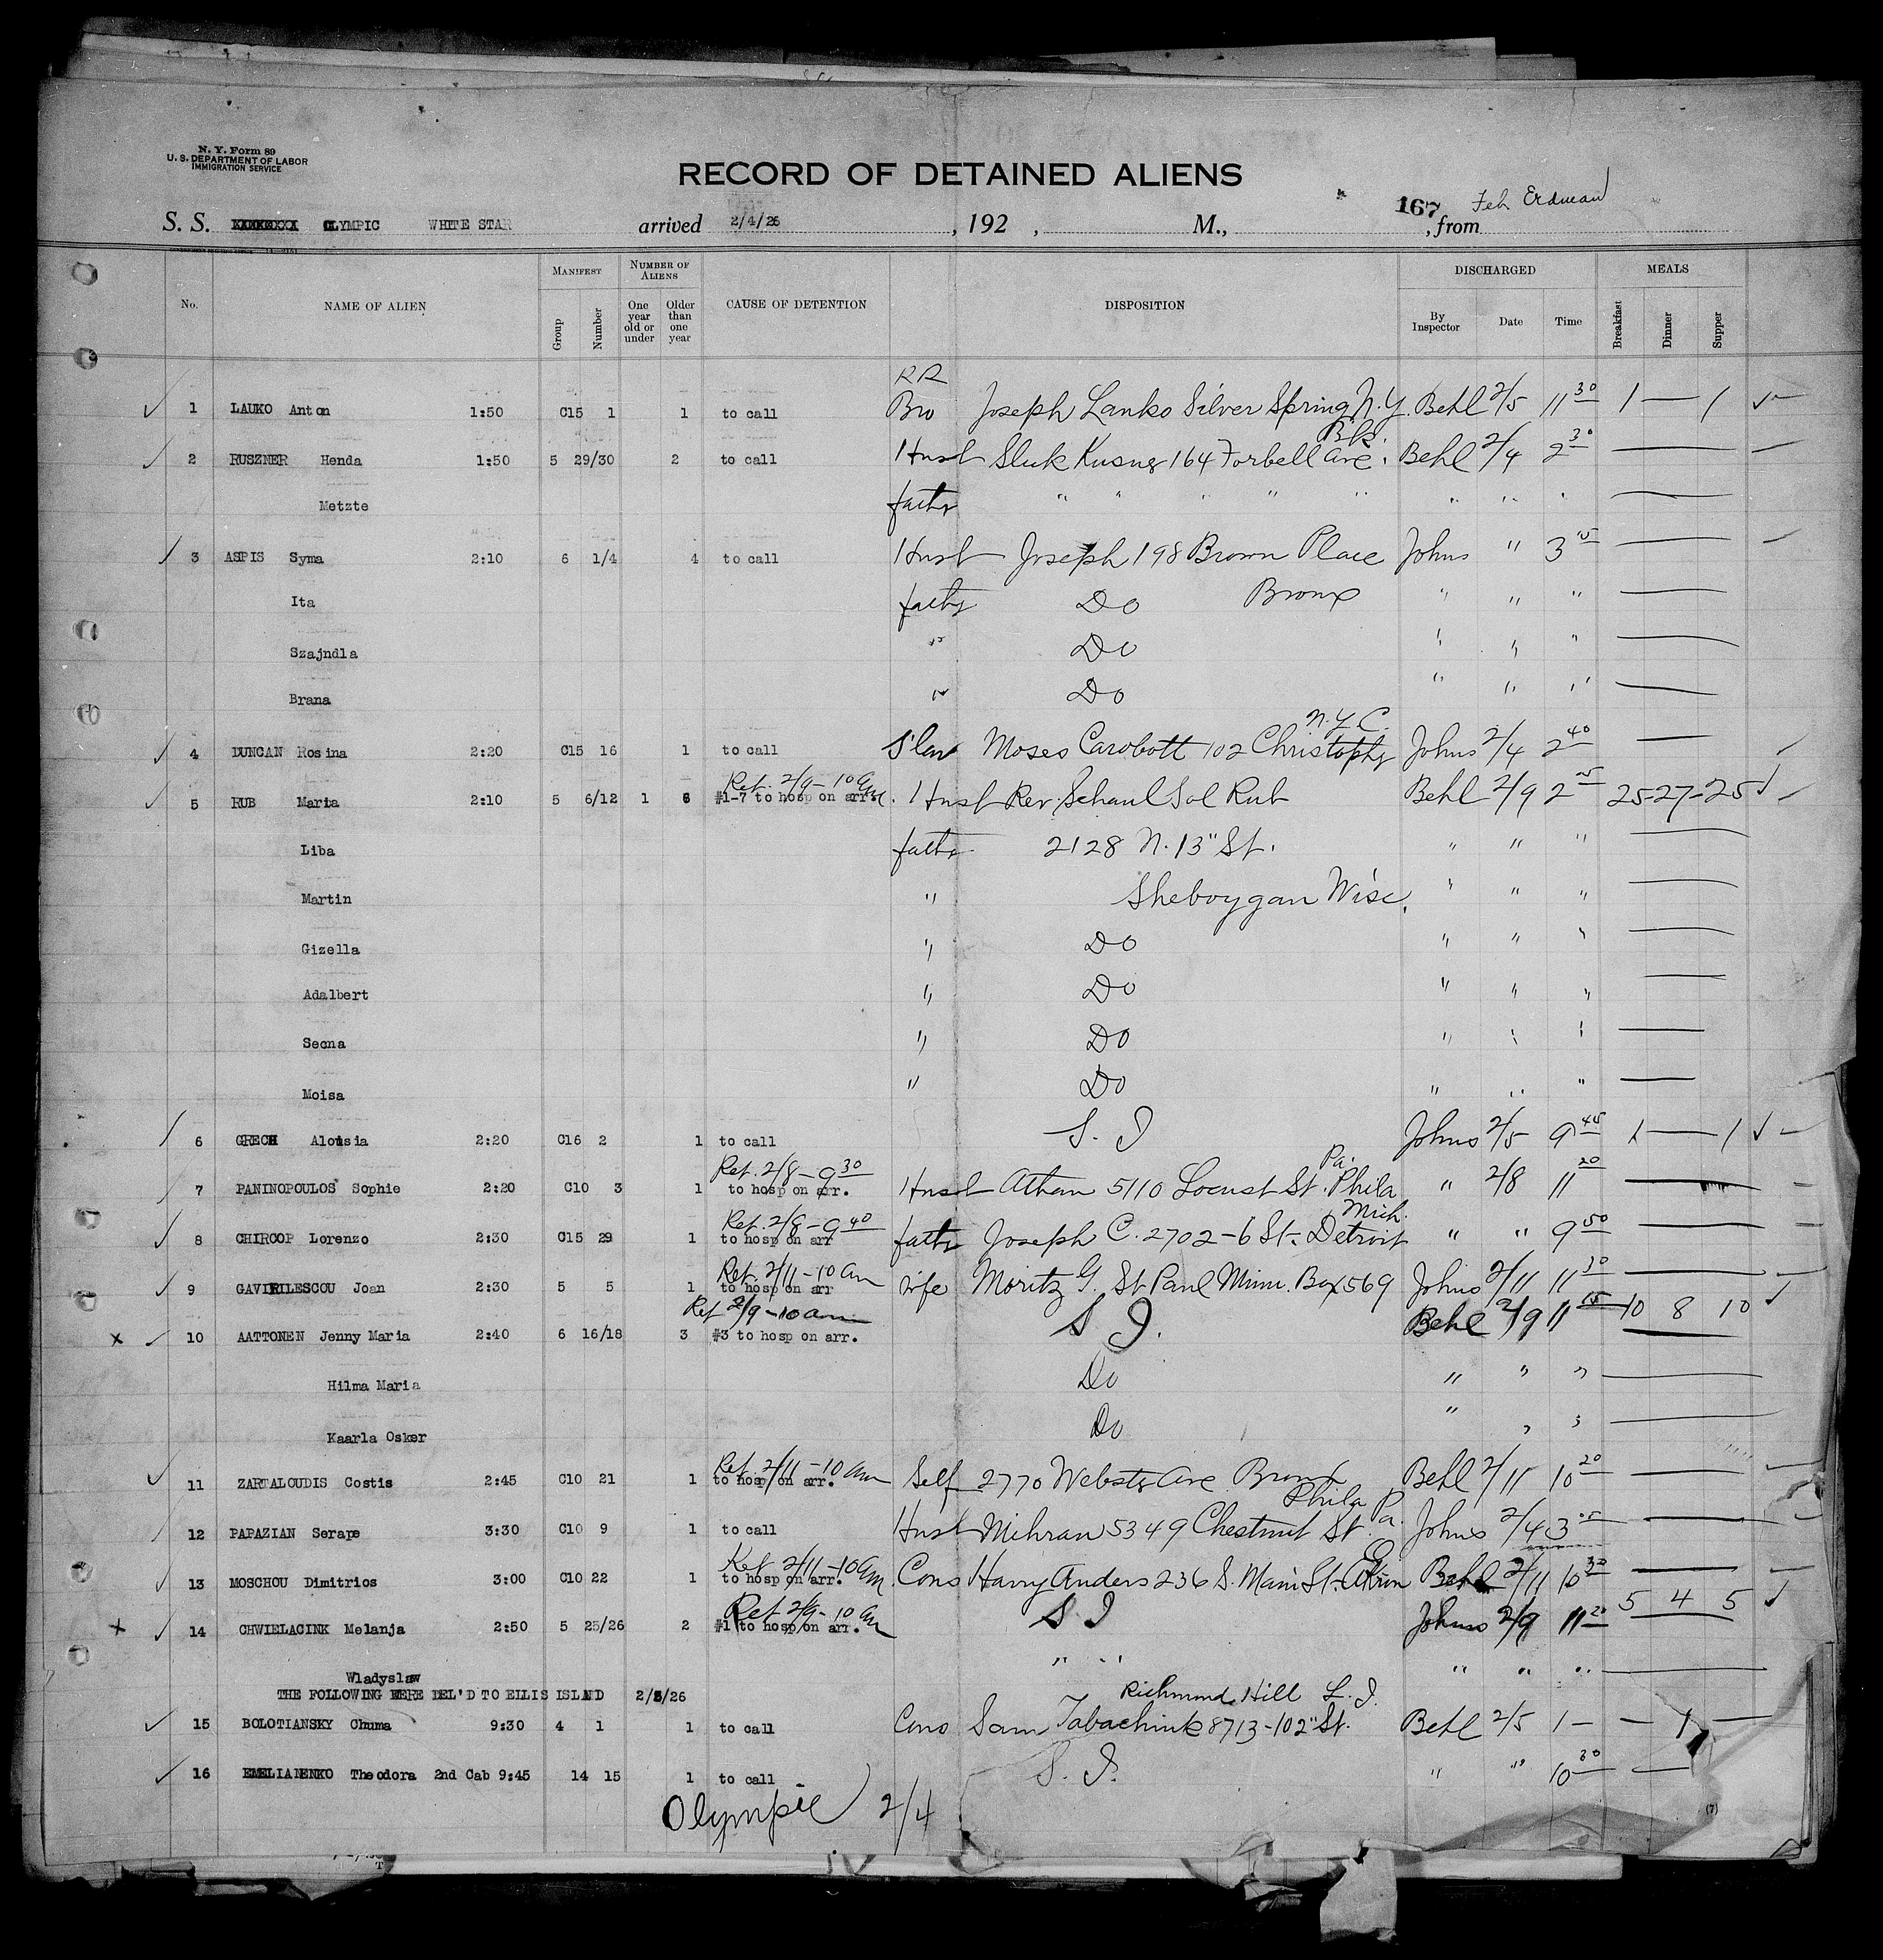 N. Y. Form 89
U. S. DEPARTMENT OF LABOR
IMMIGRATION SERVICE
RECORD OF DETAINED ALIENS
S. S. OLYMPIC WHITE STAR arrived 2/4/26, 192 , M., 167, from
No. NAME OF ALIEN MANIFEST Group Number NUMBER OF ALIENS One year old or under Older than one year CAUSE OF DETENTION DISPOSITION DISCHARGED By Inspector Date Time MEALS Breakfast Dinner Supper
RR
1 LAUKO Anton 1:50 C15 1 1 to call Bro Joseph Lanko Silver Spring N.Y. Behl 2/5 11 30 1 — 1
Bk.
2 RUSZNER Henda 1:50 5 29/30 2 to call Husb 164 Forbell Ave. Behl 2/4 2 30
Metzte father " " " " " " " "
3 ASPIS Syma 2:10 6 1/4 4 to call Husb Joseph 198 Brown Place Johns " 3
Ita father Do Bronx " " "
Szajndla " Do " " "
Brana " Do " " "
N.Y.C.
4 DUNCAN Rosina 2:20 C15 16 1 to call Moses Carobott 102 Christophr Johns 2/4 2 40
Ret. 2/9 - 10 am.
5 RUB Maria 2:10 5 6/12 1 6 #1-7 to hosp on arr. Husb Rev. Schaul Sol Rub Behl 2/9 2 25-27-25
Liba father 2128 N. 13" St. " " "
Martin " Sheboygan Wisc. " " "
Gizella " Do " " "
Adalbert " Do " " "
Secna " Do " " "
Moisa " Do " " "
6 GRECH Aloisia 2:20 C16 2 1 to call S. I Johns 2/5 9 45 1 — 1
Ret. 2/8 - 9 30 Pa.
7 PANINOPOULOS Sophie 2:20 C10 3 1 to hosp on arr. Husb Athan 5110 Locust St. Phila " 2/8 11 20
Ret. 2/8 - 9 40 Mich.
8 CHIRCOP Lorenzo 2:30 C15 29 1 to hosp on arr father Joseph C. 2702-6 St. Detroit " " 9 50
Ret. 2/11 - 10 am
9 GAVRILESCOU Joan 2:30 5 5 1 to hosp on arr wife Moritz G. St Paul Minn. Box 569 Johns 2/11 11 30
Ret 2/9 - 10 am
10 AATTONEN Jenny Maria 2:40 6 16/18 3 #3 to hosp on arr. S I. Behl 2/9 11 15 10 8 10
Hilma Maria Do " " "
Kaarla Osker Do " " "
Ret. 2/11 - 10 am
11 ZARTALOUDIS Costis 2:45 C10 21 1 to hosp on arr. Self 2770 Webster Ave Bronx Behl 2/11 10 20
Phila Pa.
12 PAPAZIAN Serape 3:30 C10 9 1 to call Husb Mihran 5349 Chestnut St. Johns 2/4 3
Ret 2/11 - 10 am O
13 MOSCHOU Dimitrios 3:00 C10 22 1 to hosp on arr. Cons Harry Anders 236 S. Main St. Akron Behl 2/11 10 30
Ret 2/9 - 10 am
14 CHWIELACINK Melanja 2:50 5 25/26 2 #1 to hosp on arr. S I Johns 2/9 11 20 5 4 5
Wladyslaw " " " " "
THE FOLLOWING WERE DEL'D TO ELLIS ISLAND 2/5/26
Richmond Hill L.I.
15 BOLOTIANSKY Chuma 9:30 4 1 1 to call Cons Sam Tabachink 8713-102" St. Behl 2/5 1 — — 1 —
16 EMELIANENKO Theodora 2nd Cab 9:45 14 15 1 to call S. I. " " 10 30
Olympic 2/4
(7)